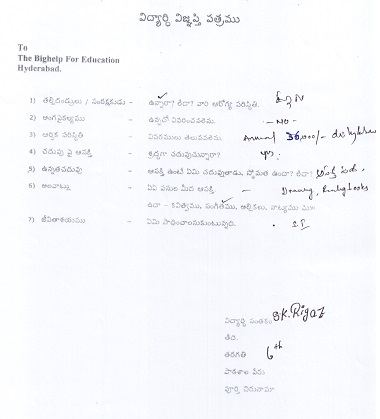 విద్యార్థి విజ్ఞప్తి పత్రము
To
The Bighelp For Education
Hyderabad.
1) తల్లిదండ్రులు / సంరక్షకుడు - ఉన్నారా? లేదా? వారి ఆరోగ్య పరిస్థితి.
2) అంగవైకల్యము - ఉన్నచో వివరించవలెను. - NO -
3) ఆర్థిక పరిస్థితి - వివరములు తెలుపవలెను. Annual 36,000/-
4) చదువు పై ఆసక్తి - శ్రద్ధగా చదువుచున్నారా?
5) ఉన్నతచదువు - ఆసక్తి ఉంటే ఏమి చదువుతాడు, స్తోమత ఉందా? లేదా?
6) అలవాట్లు - ఏఏ పనుల మీద ఆసక్తి. Drawing,
ఉదా - కవిత్వము, సంగీతము, అల్లికలు, నాట్యము మొ॥
7) జీవితాశయము - ఏమి సాధించాలనుకుంటున్నది.
విద్యార్థి సంతకం SK. Rigaz
తేది.
తరగతి 6th
పాఠశాల పేరు
పూర్తి చిరునామా